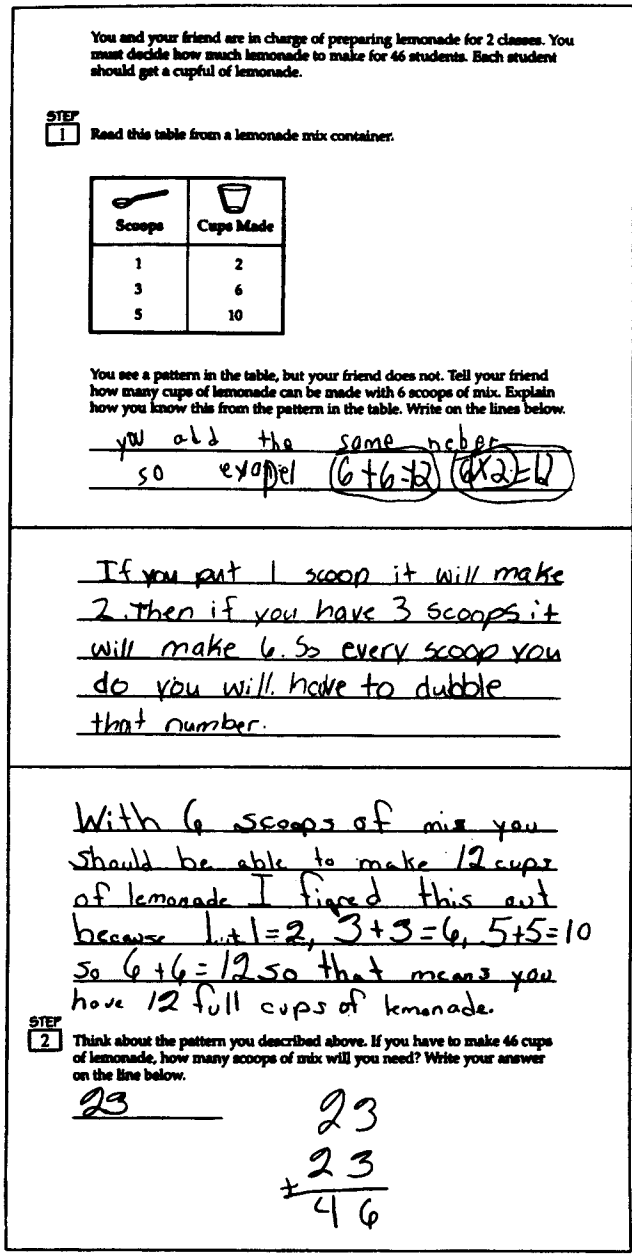 You and your friend are in charge of preparing lemonade for 2 classes. You
must decide how much lemonade to make for 46 students. Each student
should get a cupful of lemonade.
STEP
1 Read this table from a lemonade mix container.
Scoops Cups Made
1 2
3 6
5 10
You see a pattern in the table, but your friend does not. Tell your friend
how many cups of lemonade can be made with 6 scoops of mix. Explain
how you know this from the pattern in the table. Write on the lines below.
you add the same neber
so exapel (6+6=12) (6×2)=12
If you put 1 scoop it will make
2. Then if you have 3 scoops it
will make 6. So every scoop you
do you will have to dubble
that number.
With 6 scoops of mix you
should be able to make 12 cups
of lemonade I figred this out
because 1+1=2, 3+3=6, 5+5=10
so 6+6=12 so that means you
have 12 full cups of lemonade.
STEP
2 Think about the pattern you described above. If you have to make 46 cups
of lemonade, how many scoops of mix will you need? Write your answer
on the line below.
23
23
+ 23
46